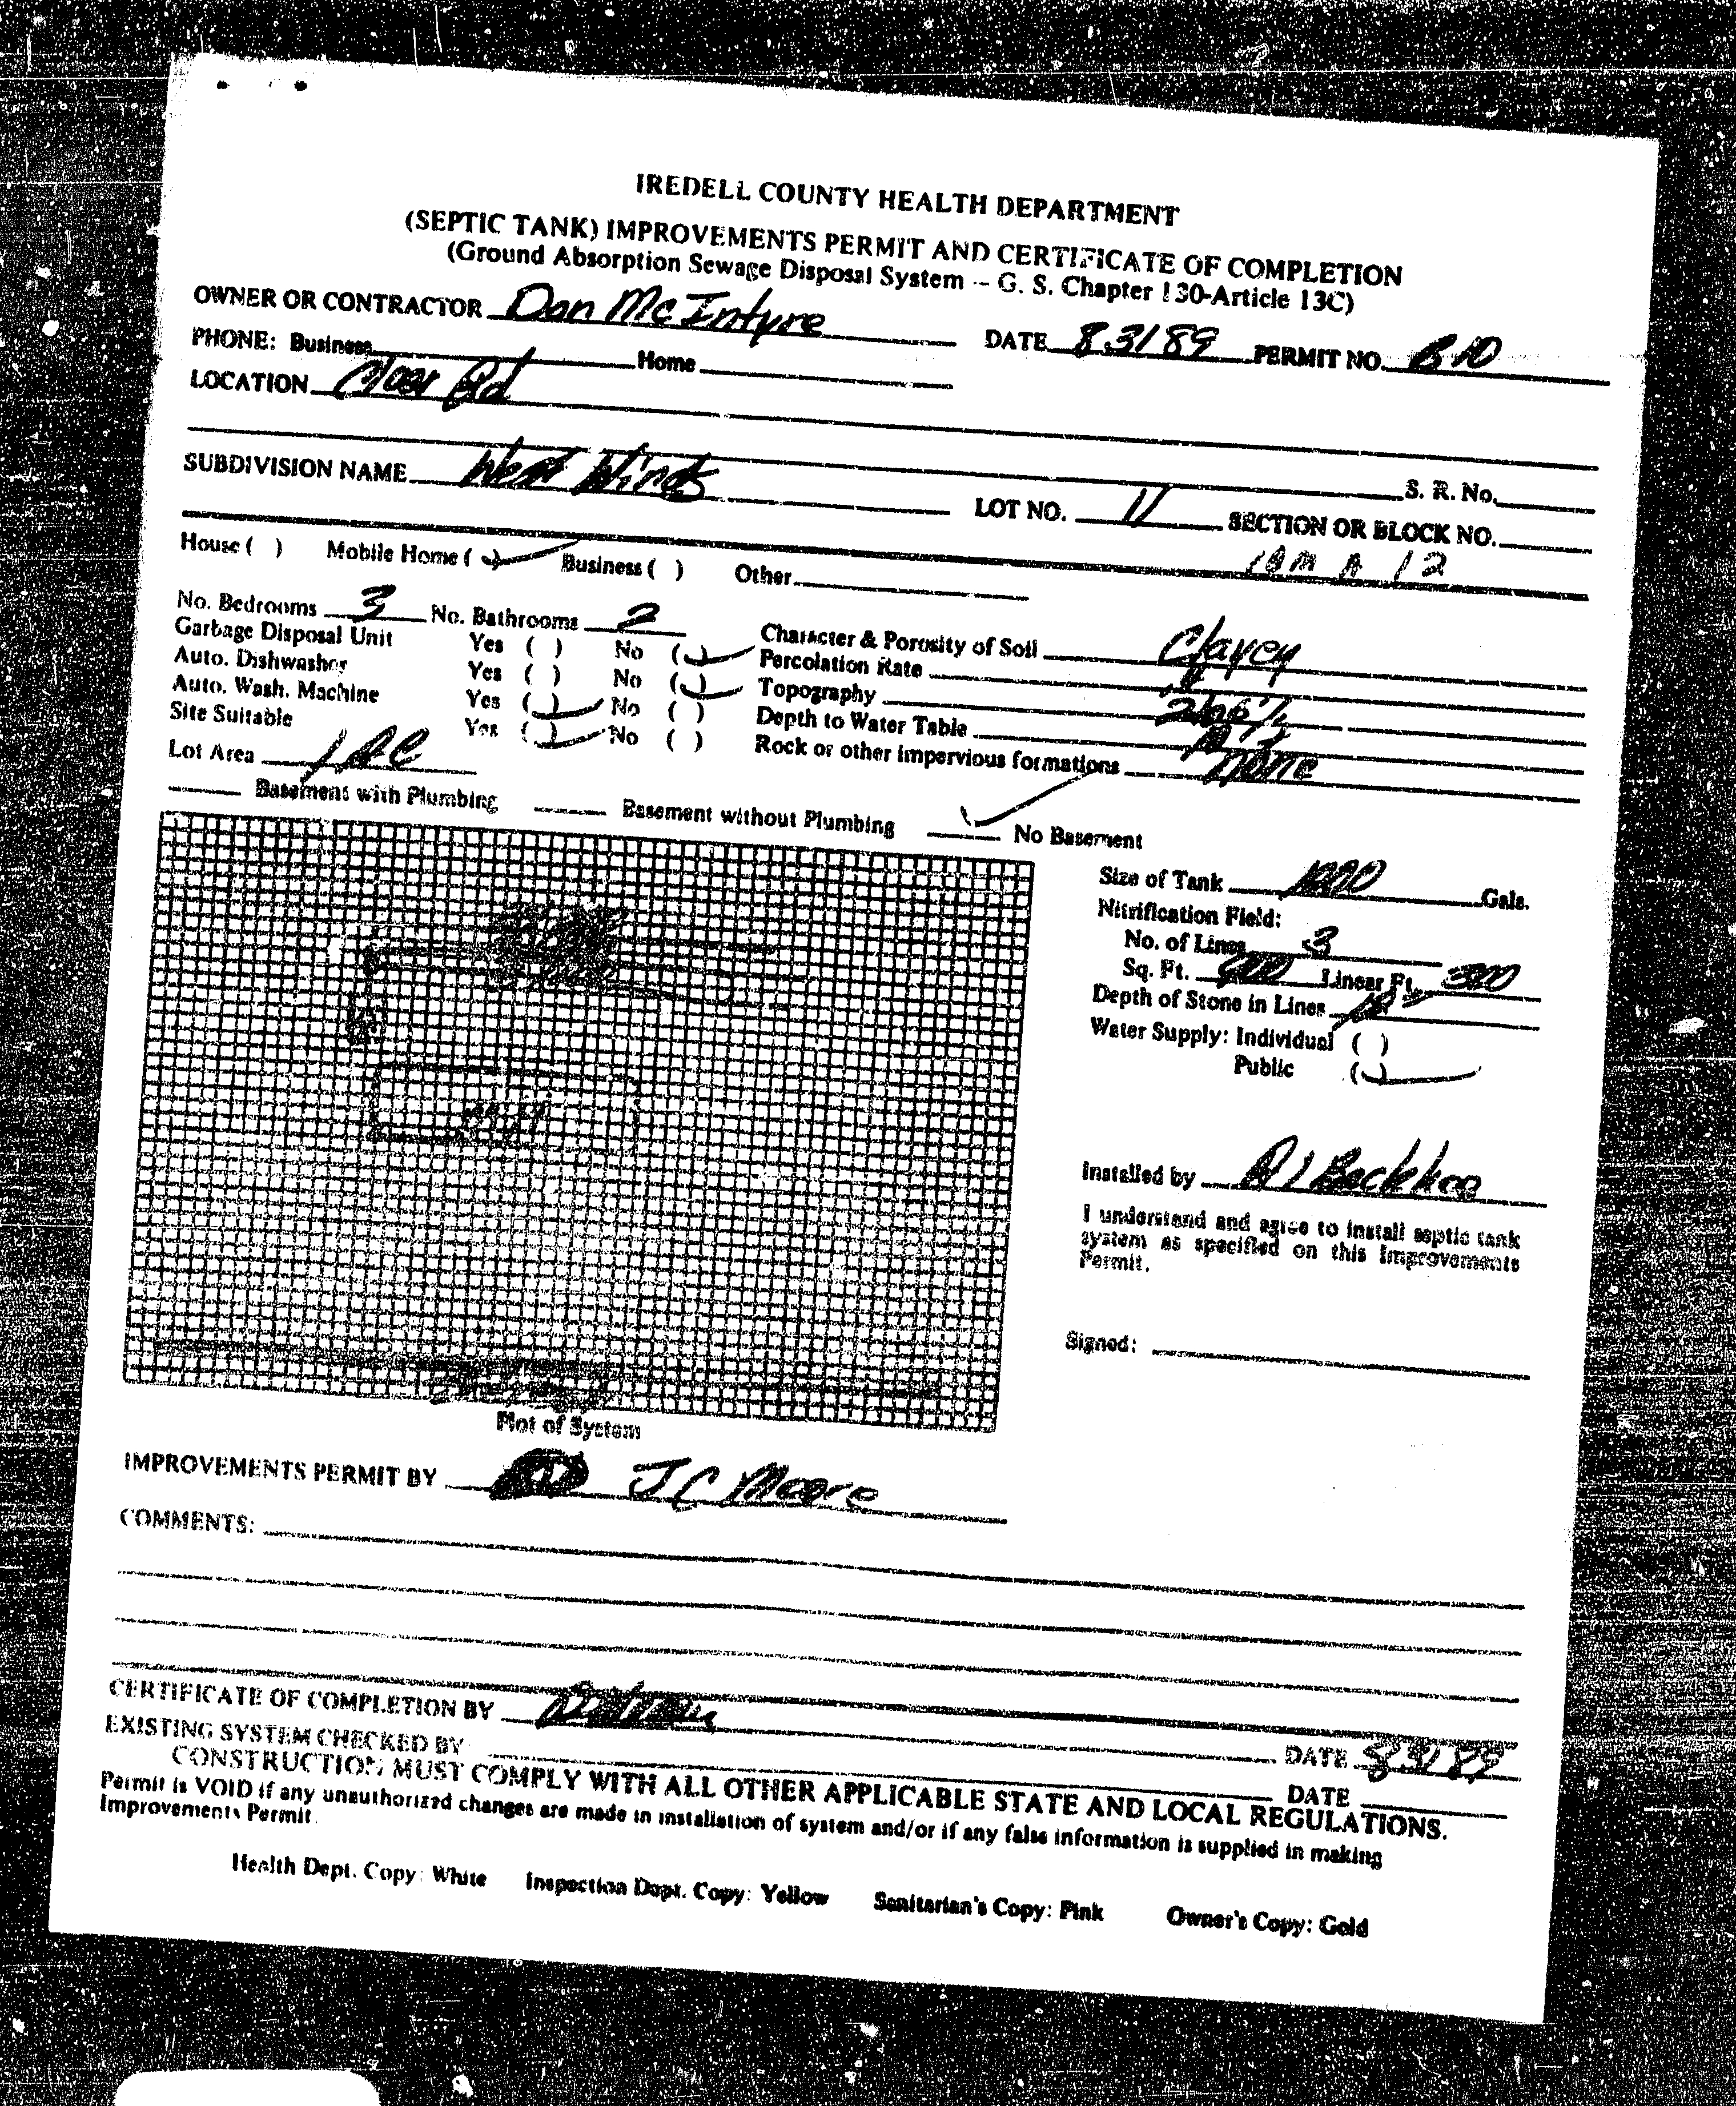 IREDELL COUNTY HEALTH DEPARTMENT
(SEPTIC TANK) IMPROVEMENTS PERMIT AND CERTIFICATE OF COMPLETION
(Ground Absorption Sewage Disposal System -- G. S. Chapter 130-Article 13C)
OWNER OR CONTRACTOR Dan McIntyre DATE 8.31 89 PERMIT NO.
PHONE: Business Home
LOCATION Rd
SUBDIVISION NAME West Winds S. R. No.
LOT NO. 11 SECTION OR BLOCK NO.
House ( ) Mobile Home ( ✓) Business ( ) Other 12
No. Bedrooms 3 No. Bathrooms 2
Garbage Disposal Unit Yes ( ) No (✓) Character & Porosity of Soil Clayey
Auto. Dishwasher Yes ( ) No (✓) Percolation Rate
Auto. Wash. Machine Yes (✓) No ( ) Topography
Site Suitable Yes (✓) No ( ) Depth to Water Table
Lot Area 1 AC Rock or other impervious formations none
Basement with Plumbing Basement without Plumbing ✓ No Basement
Size of Tank 1000 Gals.
Nitrification Field:
No. of Lines 3
Sq. Ft. 900 Linear Ft. 300
Depth of Stone in Lines
Water Supply: Individual ( )
Public (✓)
Installed by Backhoe
I understand and agree to install septic tank
system as specified on this Improvements
Permit.
Signed:
Plot of System
IMPROVEMENTS PERMIT BY J C Moore
COMMENTS:
CERTIFICATE OF COMPLETION BY DATE 8.31 89
EXISTING SYSTEM CHECKED BY DATE
CONSTRUCTION MUST COMPLY WITH ALL OTHER APPLICABLE STATE AND LOCAL REGULATIONS.
Permit is VOID if any unauthorized changes are made in installation of system and/or if any false information is supplied in making
Improvements Permit.
Health Dept. Copy: White Inspection Dept. Copy: Yellow Sanitarian's Copy: Pink Owner's Copy: Gold